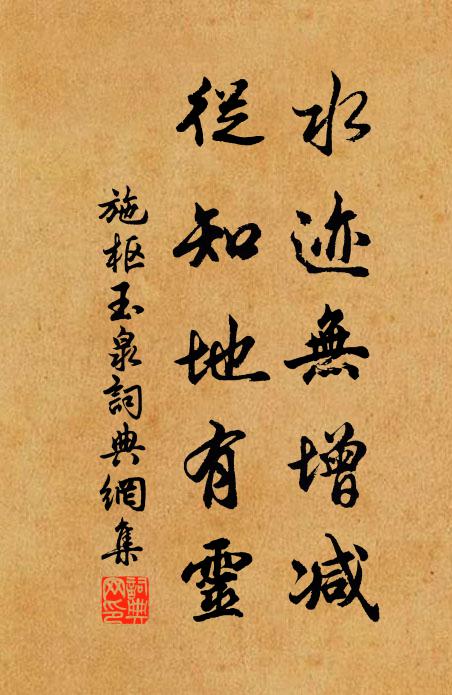 水迹無增减
從知地有靈
施枢玉泉詞典網集
詞典网印